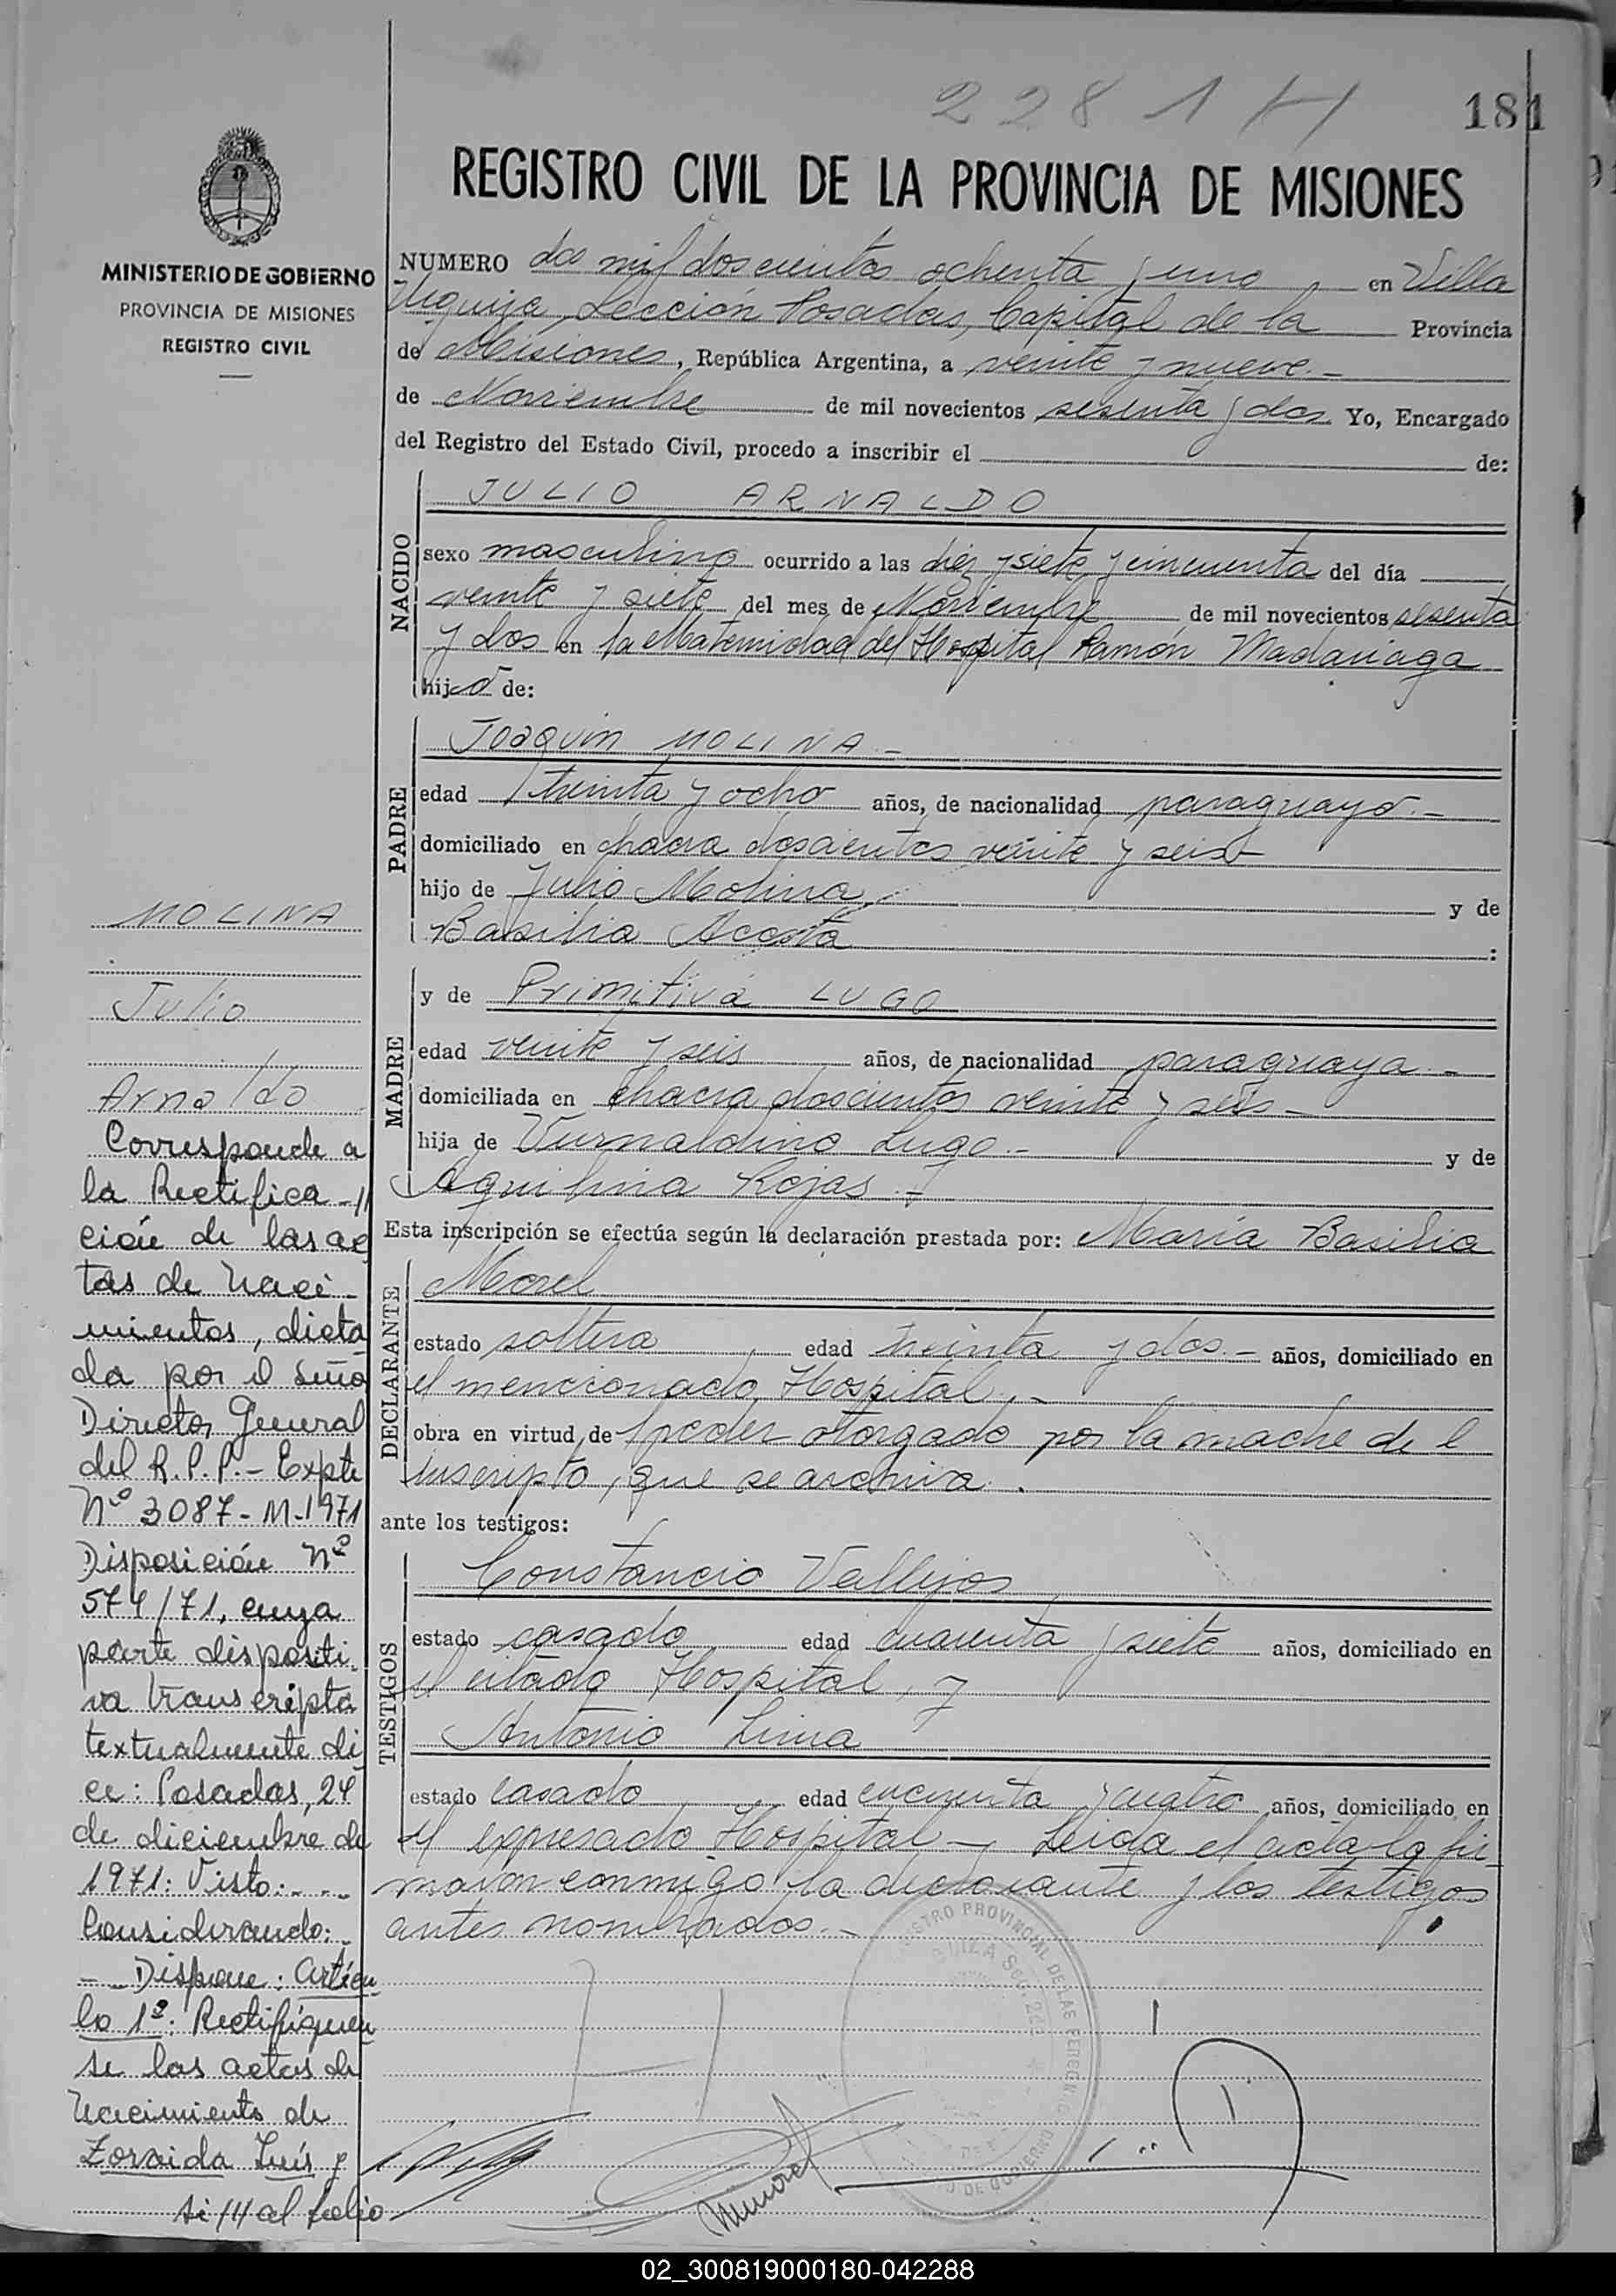 2281
181
MINISTERIO DE GOBIERNO
PROVINCIA DE MISIONES
REGISTRO CIVIL
REGISTRO CIVIL DE LA PROVINCIA DE MISIONES
NUMERO dos mil doscientos ochenta y uno en Villa
Urquiza, Sección Posadas, Capital de la Provincia
de Misiones, República Argentina, a veinte y nueve.-
de Noviembre de mil novecientos sesenta y dos Yo, Encargado
del Registro del Estado Civil, procedo a inscribir el de:
NACIDO
JULIO ARNALDO
sexo masculino ocurrido a las diez y siete y cincuenta del día
veinte y siete del mes de Noviembre de mil novecientos sesenta
y dos en la Maternidad del Hospital Ramón Madariaga
hijo de:
PADRE
Joaquin MOLINA -
edad treinta y ocho años, de nacionalidad paraguayo.-
domiciliado en chacra doscientos veinte y seis-
hijo de Julio Molina y de
Basilia Acosta :
MADRE
y de Primitiva LUGO
edad veinte y seis años, de nacionalidad paraguaya -
domiciliada en chacra doscientos veinte y seis -
hija de Lugo.- y de
Aquilina Rojas.-
Esta inscripción se efectúa según la declaración prestada por: María Basilia
DECLARANTE
Morel
estado soltera edad treinta y dos.- años, domiciliado en
el mencionado Hospital.-
obra en virtud de poder otorgado por la madre de l
inscripto, que se archiva.
ante los testigos:
TESTIGOS
Constancio Vallejos
estado casado edad cuarenta y siete años, domiciliado en
el citado Hospital, y
Antonio Lima
estado casado edad cincuenta y cuatro años, domiciliado en
el expresado Hospital - Leida el acta la fir-
maron conmigo la declarante y los testigos
antes nombrados.-
MOLINA
Julio
Arnaldo
Corresponde a
la Rectifica-//
ción de las ac
tas de naci-
mientos, dicta
da por el Seño
Director General
del R.P.P.- Expte
Nº 3087-M-1971
Disposición Nº
574/71, cuya
parte dispositi-
va transcripta
textualmente di
ce: Posadas, 24
de diciembre de
1971: Visto:-..
Considerando:-
- Dispone: Artícu
lo 1º: Rectifíquen
se las actas de
nacimiento de
Zoraida Luís y
si /// al folio
Morel
02_300819000180-042288